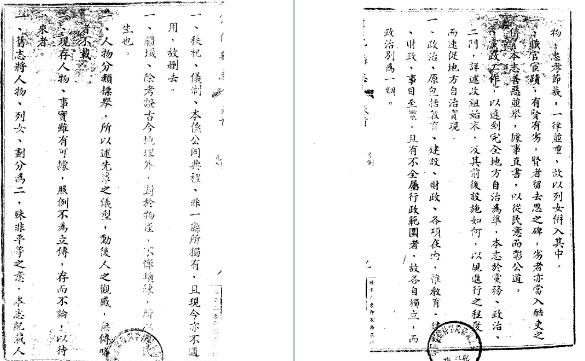 一、秩祀、儀制、本係公同典禮、非一縣所獨有、且現今亦不適
用、故刪去。
一、疆域、除考證古今地理外、對於物產、不憚瑣碎、
生也。
一、人物分類標舉、所以述先輩之儀型、動後人之觀感、無傳略
者不載。
一、現存人物、事實雖有可據、照例不為立傳、存而不論、以待
來者。
一、舊志將人物、列女、劃分為二、殊非平等之意、本志紀載人
物、忠孝節義、一律並重、故以列女併入其中。
一、職官宦蹟、有賢有劣、賢者留去思之碑、劣者亦當入酷史之
本志善惡並舉、據事直書、以從民意而彰公道。
黨政工作、以達到完全地方自治為準、本志於黨務、政治、
二門、詳述改組始末、及其前後設施如何、以規進行之程度
而速促地方自治實現。
一、政治、原包括教育、建設、財政、各項在內、惟教育、
、財政、事目至繁、且有不全屬行政範圍者、故各自獨立、而
政治別為一類。